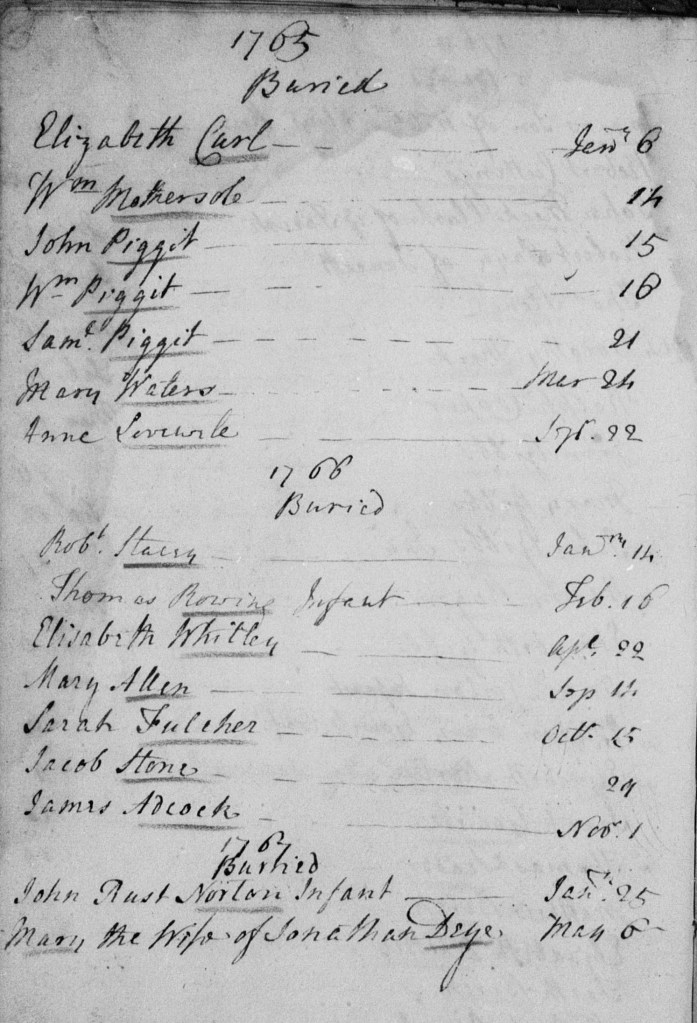 1765
Buried
Elizabeth Carl Janry 6
Wm Mothersole 14
John Piggit 15
Wm Piggit 16
Saml. Piggit 21
Mary Waters Mar 24
Anne Lovewile Sept. 22
1766
Buried
Robt. Stacey Janry 14
Thomas Rowing Infant Feb. 16
Elisabeth Whitley Apl. 22
Mary Allen Sep 14
Sarah Fulcher Octr. 15
Jacob Stone 29
James Adcock Nov. 1
1767
Buried
John Rust Norton Infant Janry. 25
Mary the Wife of Jonathan Deye May 6